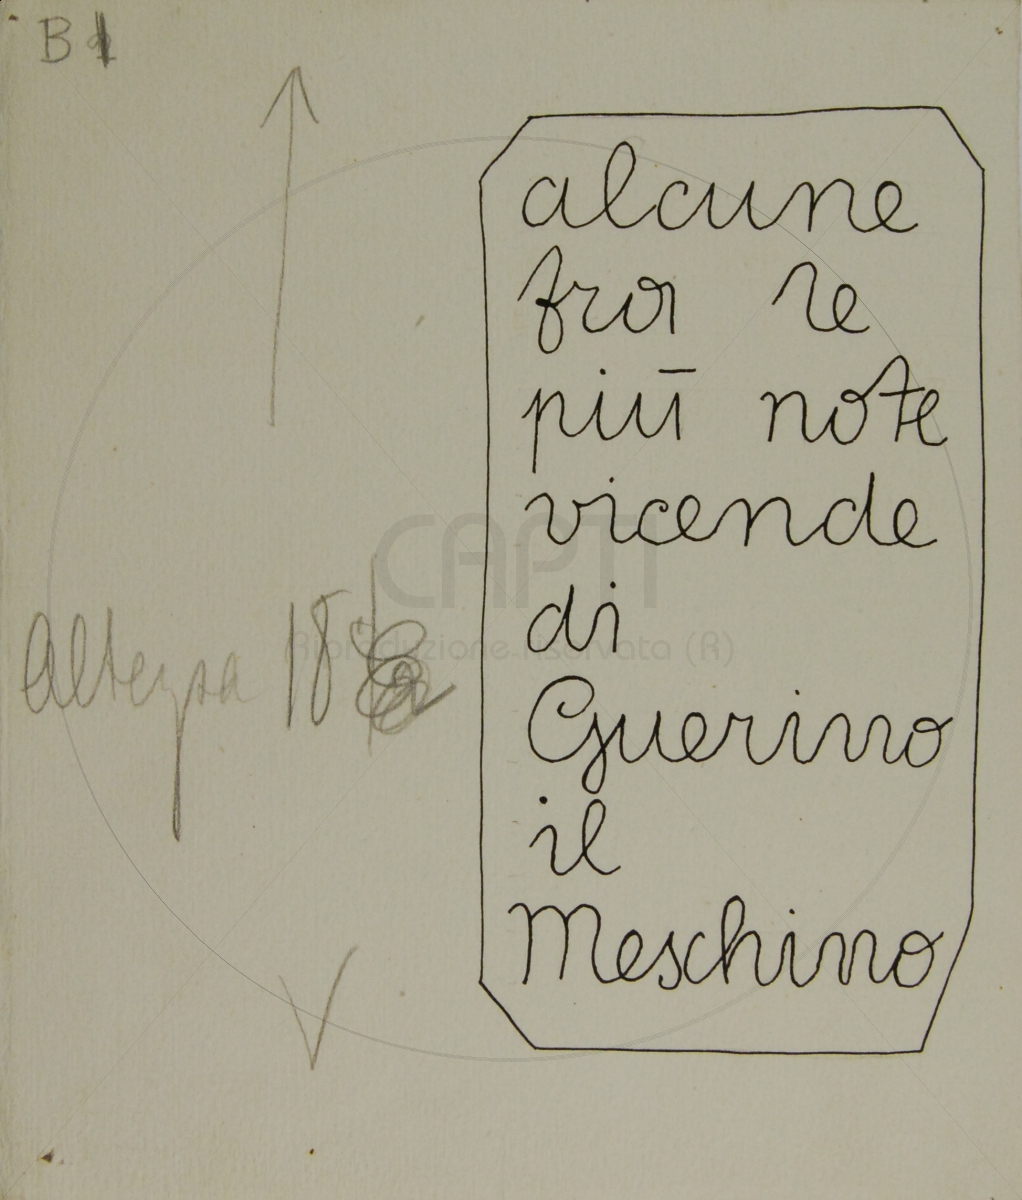 B1
alcune
fra le
più note
vicende
di
Guerino
il
Meschino
Altezza 18
CAPTI
Riproduzione riservata (R)